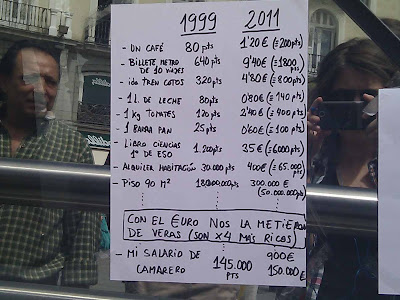 1999 2011
- UN CAFÉ 80 pts 1'20 € (≡ 200 pts)
- BILLETE METRO DE 10 VIAJES 640 pts 9'40 € (≡ 1800 pts)
- ida TREN COTOS 320 pts 4'80 € (≡ 800 pts)
- 1 L. DE LECHE 80 pts 0'80 € (≡ 140 pts)
- 1 Kg TOMATES 120 pts 2'40 € (≡ 400 pts)
- 1 BARRA PAN 25 pts 0'60 € (≡ 100 pts)
- LIBRO CIENCIAS 1º DE ESO 1.200 pts 35 € (≡ 6000 pts)
- ALQUILER HABITACIÓN 30.000 pts 400 € (≡ 65.000 pts)
- PISO 90 M² 300.000 € (50.000.000 pts)
CON EL EURO NOS LA METIERON
DE VERAS (SON x4 MÁS RICOS)
- MI SALARIO DE CAMARERO 145.000 PTS 900 € 150.000